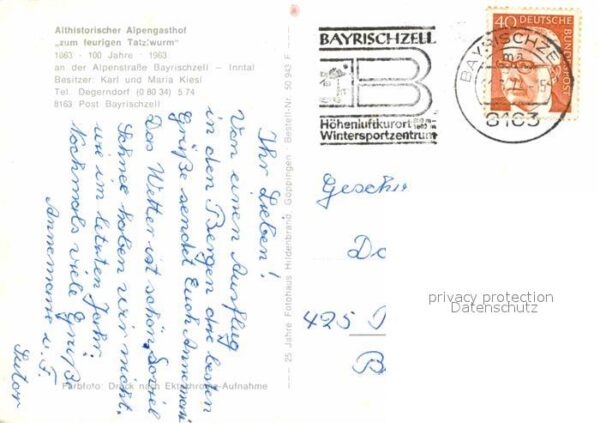 Althistorischer Alpengasthof
„zum feurigen Tatzlwurm"
1863 · 100 Jahre · 1963
an der Alpenstraße Bayrischzell — Inntal
Besitzer: Karl und Maria Kiesl
Tel. Degerndorf (0 80 34) 5 74
8163 Post Bayrischzell
Ihr Lieben!
Von einen Ausflug
in den Bergen die besten
Grüße sendet Euch Annemarie
Das Wetter ist schön. Soviel
Schnee haben wir nicht,
wie im letzten Jahr.
Nochmals viele Grüße
Annemarie u. F.
Sutor
Farbfoto: Druck nach Ektachrome-Aufnahme
25 Jahre Fotohaus Hildenbrand, Göppingen · Bestell-Nr. 50 943 F
BAYRISCHZELL
B
Höhenluftkurort 800 m
Wintersportzentrum
BAYRISCHZE
8163
40 DEUTSCHE
BUNDESPOST
Geschw
Do
425
B
privacy protection
Datenschutz